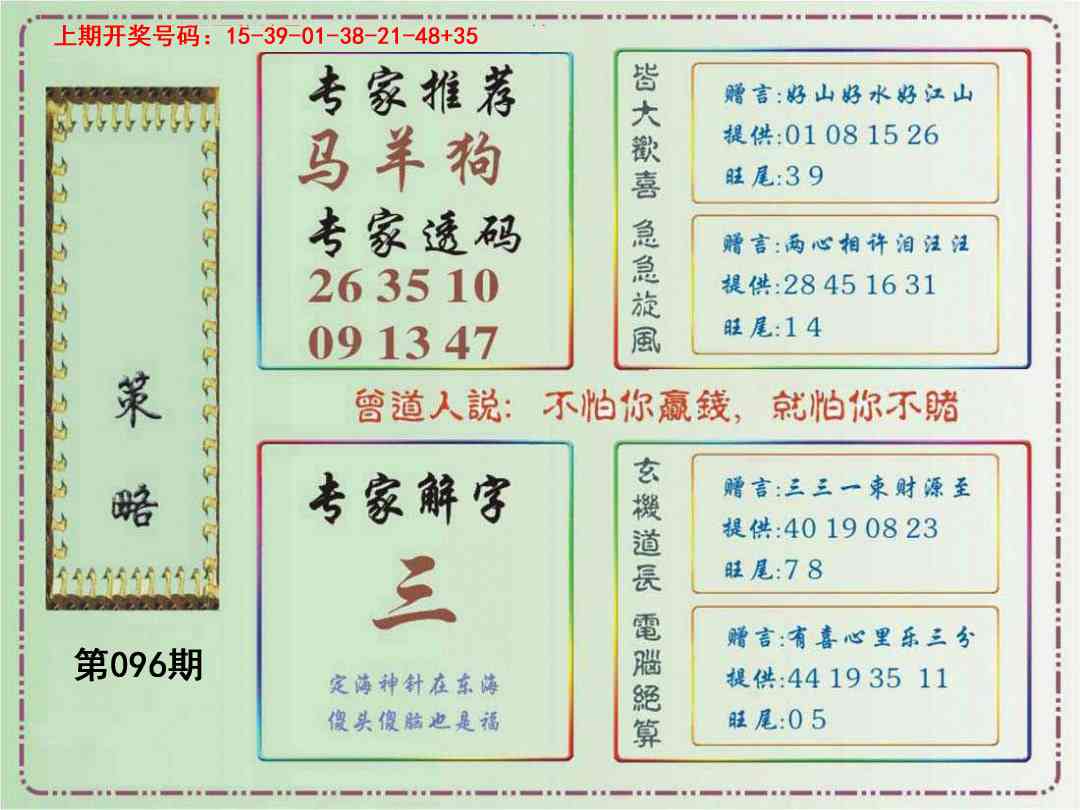 上期开奖号码：15-39-01-38-21-48+35
策略
第096期
专家推荐
马羊狗
专家透码
26 35 10
09 13 47
皆大歡喜
赠言:好山好水好江山
提供:01 08 15 26
旺尾:3 9
急急旋風
赠言:两心相许泪汪汪
提供:28 45 16 31
旺尾:1 4
曾道人説：不怕你贏錢，就怕你不賭
专家解字
三
定海神针在东海
傻头傻脑也是福
玄機道長
赠言:三三一束财源至
提供:40 19 08 23
旺尾:7 8
電腦絕算
赠言:有喜心里乐三分
提供:44 19 35 11
旺尾:0 5